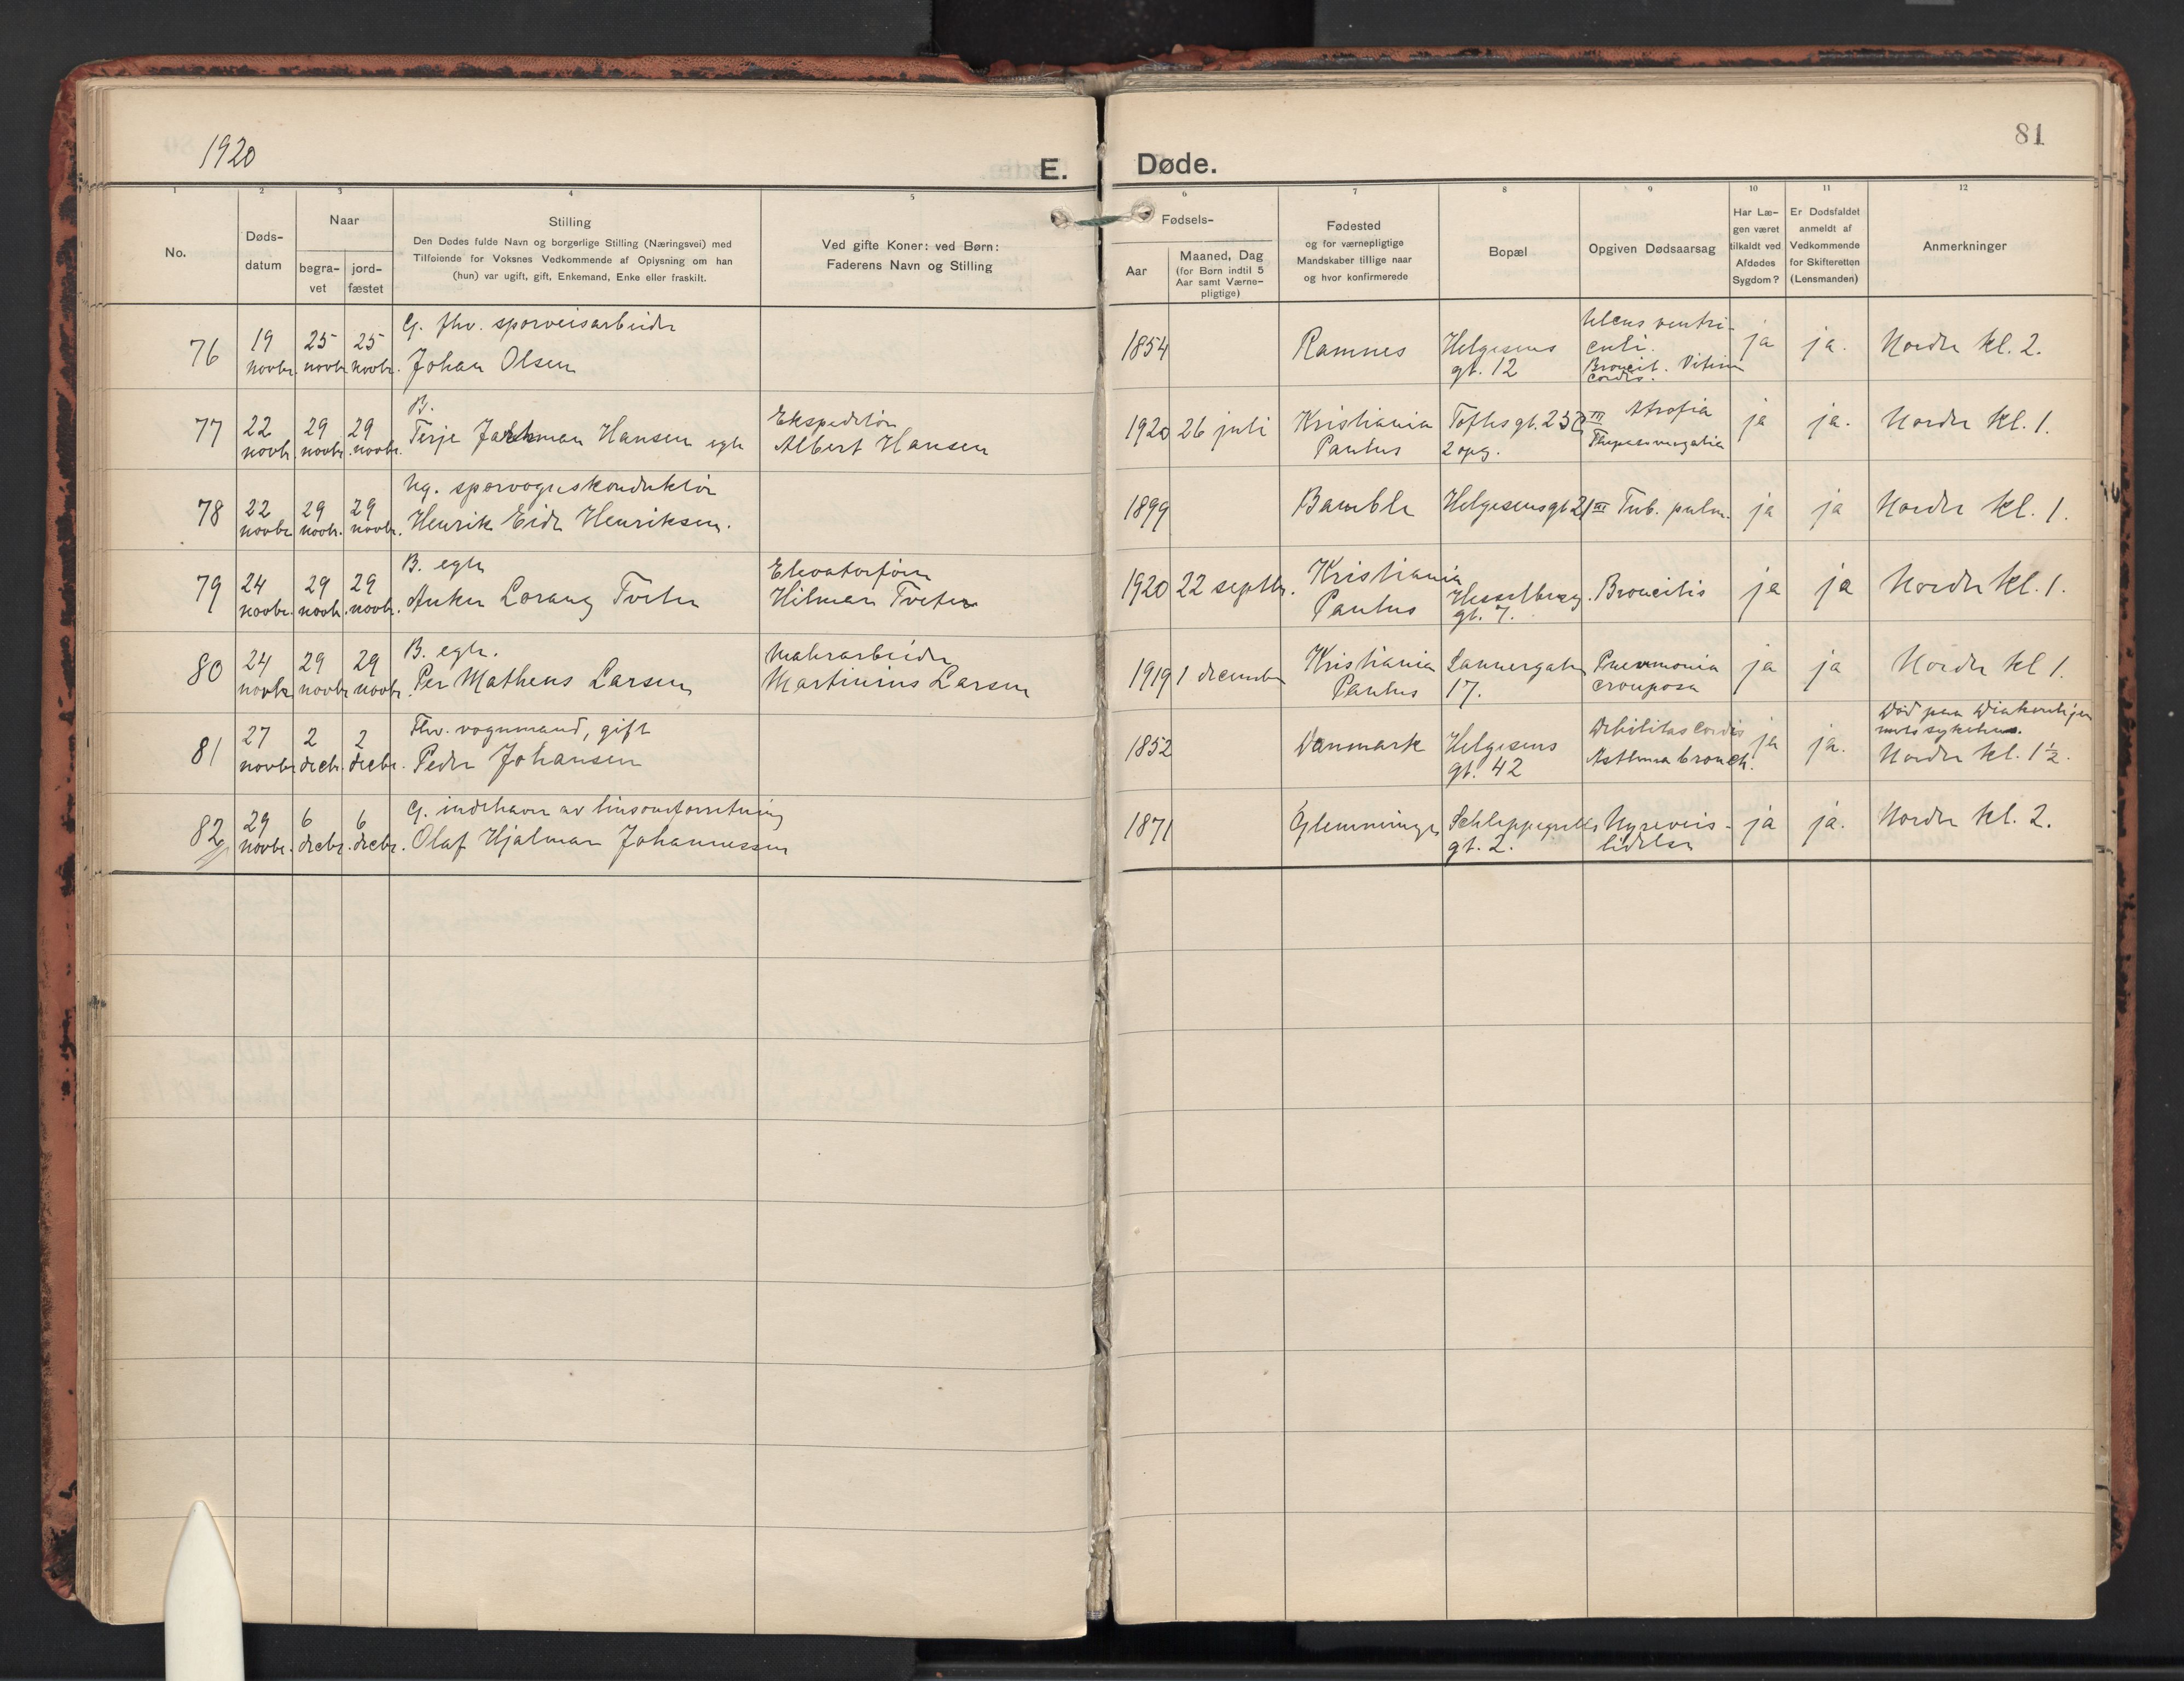 1920
E. Døde.
81
1 2 3 4 5 6 7 8 9 10 11 12
No.
Døds-
datum
Naar
begra-
vet
jord-
fæstet
Stilling
Den Dødes fulde Navn og borgerlige Stilling (Næringsvei) med
Tilføiende for Voksnes Vedkommende af Oplysning om han
(hun) var ugift, gift, Enkemand, Enke eller fraskilt.
Ved gifte Koner: ved Børn:
Faderens Navn og Stilling
Fødsels-
Aar
Maaned, Dag
(for Børn indtil 5
Aar samt Værne-
pligtige)
Fødested
og for værnepligtige
Mandskaber tillige naar
og hvor konfirmerede
Bopæl
Opgiven Dødsaarsag
Har Læ-
gen været
tilkaldt ved
Afdødes
Sygdom?
Er Dødsfaldet
anmeldt af
Vedkommende
for Skifteretten
(Lensmanden)
Anmerkninger
76
19
novbr.
25
novbr.
25
novbr.
G. fhv. sporveisarbeider
Johan Olsen
1854
Ramnes
Helgesens
gt. 12
Ulcus ventri-
culi.
Broncit. Vitium
cordis.
ja
ja.
Nordre kl. 2.
77
22
novbr.
29
novbr.
29
novbr.
B.
Terje Hansen egte
Ekspeditør
Albert Hansen
1920
26 juli
Kristiania
Paulus
Toftesgt. 23 III
2 opg.
Atrofia
ja
ja.
Nordre kl. 1.
78
22
novbr.
29
novbr.
29
novbr.
Ug. sporvognskonduktør
Henrik Eide Henriksen.
1899
Bamble
Helgesensgt 21 III
Tub. pulm.
ja
ja
Nordre kl. 1.
79
24
novbr.
29
novbr.
29
novbr.
B. egte
Anker Lorang Tveter
Elevatorfører
Hilmar Tveter
1920
22 septbr.
Kristiania
Paulus
Hesselberg
gt. 7.
Broncitis
ja
ja
Nordre kl. 1.
80
24
novbr.
29
novbr.
29
novbr.
B. egte.
Per Matheus Larsen
Malerarbeider
Martinius Larsen
1919
1 december
Kristiania
Paulus
Sannergaten
17.
Pneumonia
crouposa
ja
ja
Nordre kl 1.
81
27
novbr.
2
decbr.
2
decbr.
Fhv. vognmand, gift
Peder Johansen
1852
Danmark
Helgesens
gt. 42
Debilitas cordis
Asthma bronch.
ja
ja.
Død paa Diakonhjem
mets sykehus.
Nordre kl. 1 ½.
82
29
novbr.
6
decbr.
6
decbr.
G. indehaver av
Olaf Hjalmar Johannessen
1871
Glemminge
Schleppegrells
gt. 2.
Nyreveis-
lidelse
ja
ja.
Nordre kl. 2.